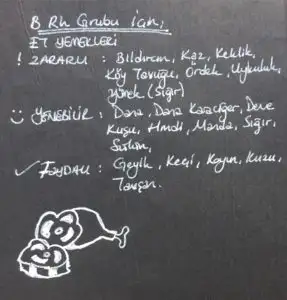 B Rh Grubu için;
ET YEMEKLERİ
! ZARARLI : Bıldırcın, Kaz, Keklik,
Köy Tavuğu, Ördek, Uykuluk,
Yürek (Sığır)
YENEBİLİR : Dana, Dana Karaciğer, Deve
Kuşu, Hindi, Manda, Sığır,
Sülün,
✓ FAYDALI : Geyik, Keçi, Koyun, Kuzu,
Tavşan.